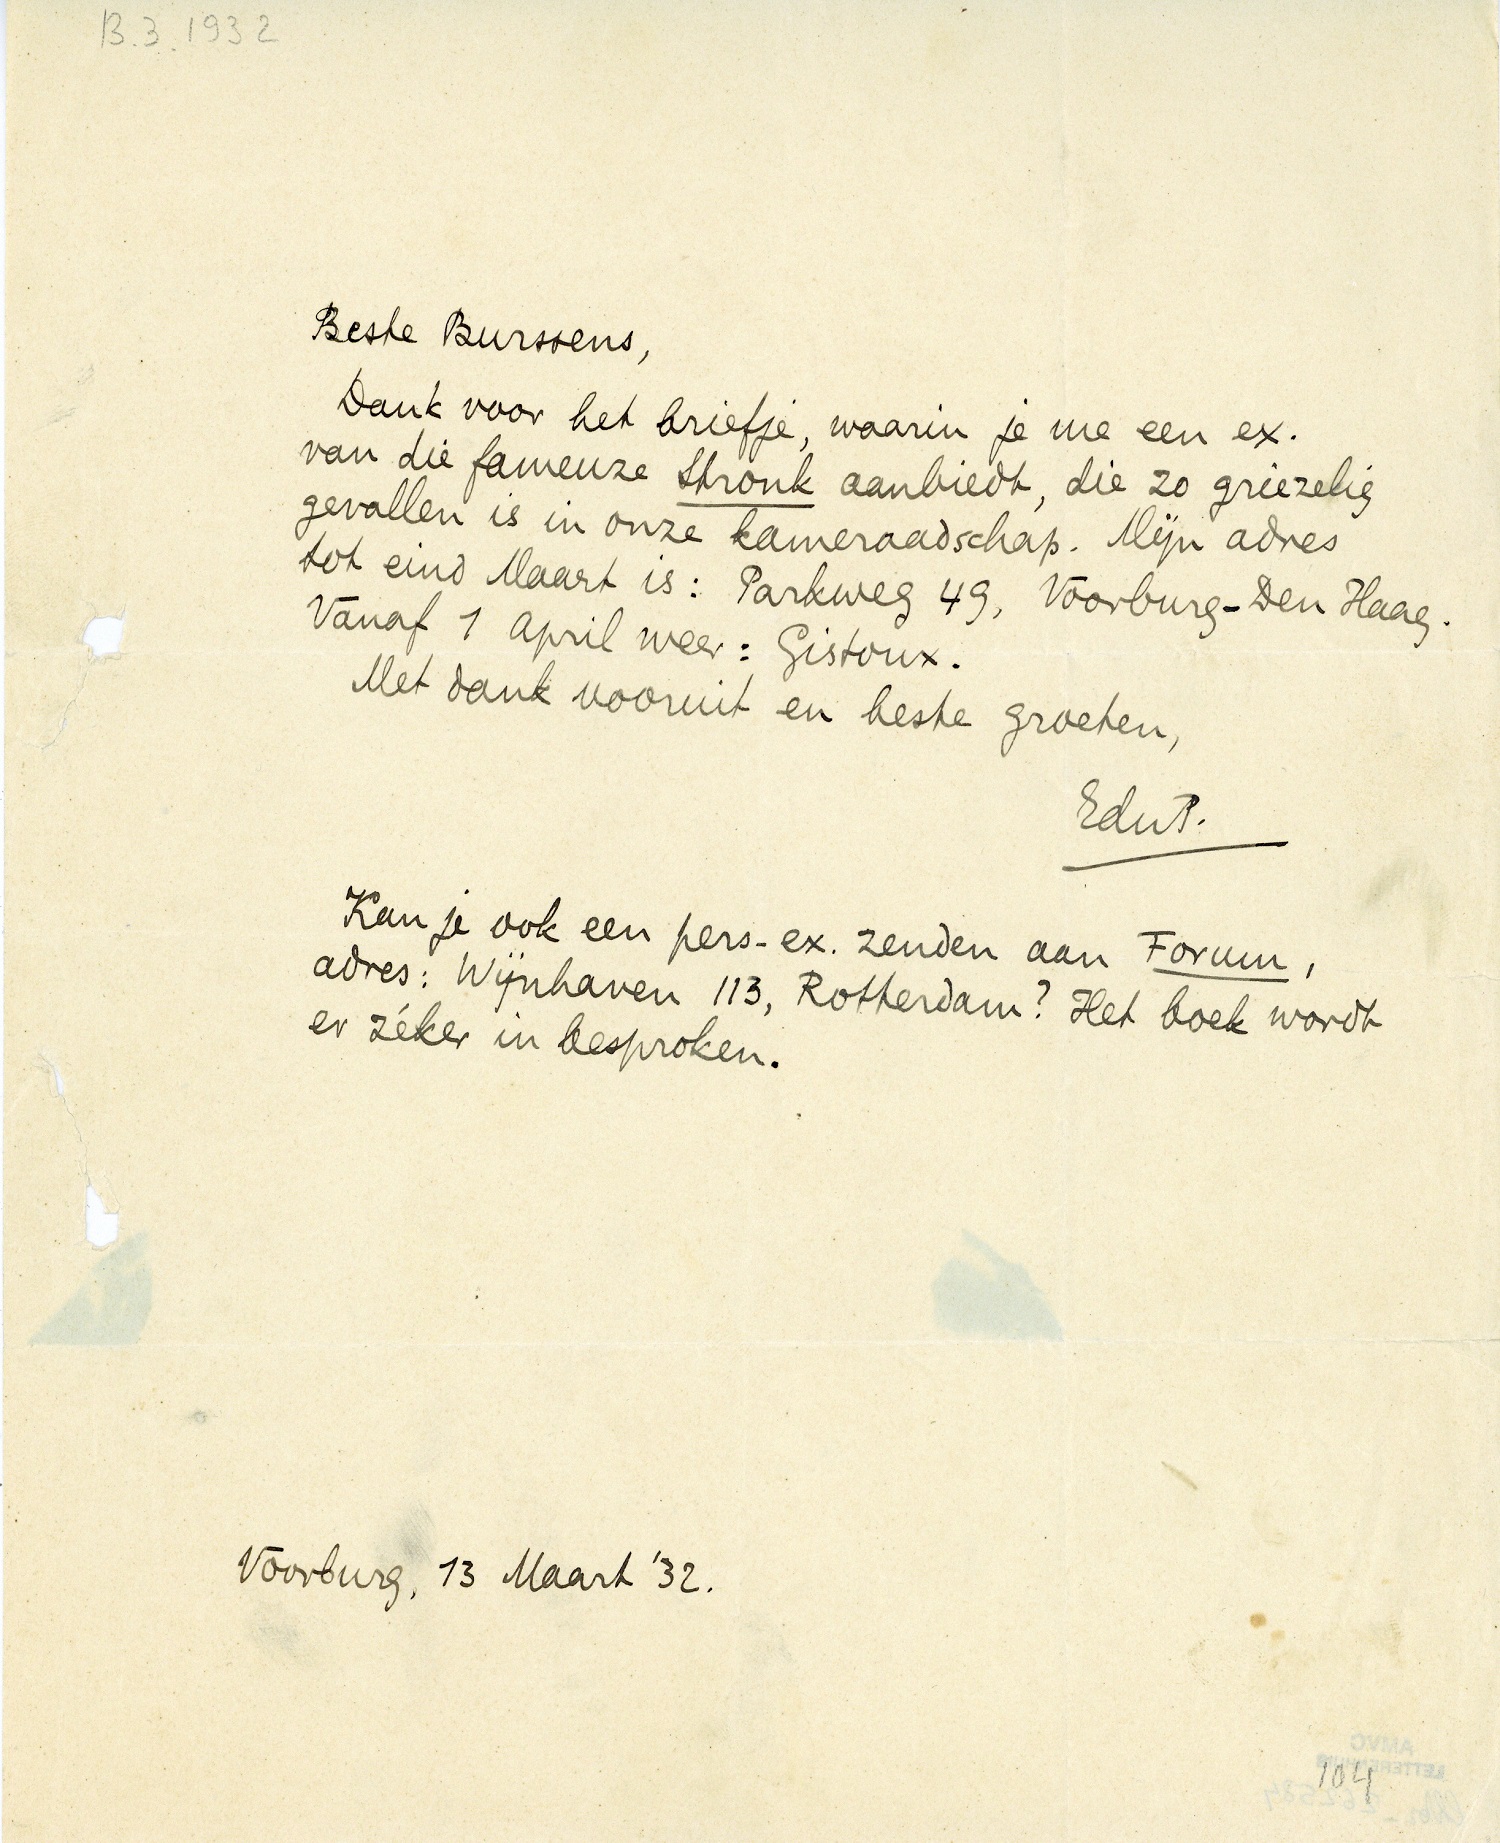 13.3.1932
Beste Burssens,
Dank voor het briefje, waarin je me een ex.
van die fameuze Stronk aanbiedt, die zo griezelig
gevallen is in onze kameraadschap. Mijn adres
tot eind Maart is: Parkweg 49, Voorburg-Den Haag.
Vanaf 1 April weer: Gistoux.
Met dank vooruit en beste groeten,
EduP.
Kan je ook een pers-ex. zenden aan Forum,
adres: Wijnhaven 113, Rotterdam? Het boek wordt
er zéker in besproken.
Voorburg, 13 Maart '32.
AMVC
LETTERENHUIS
104